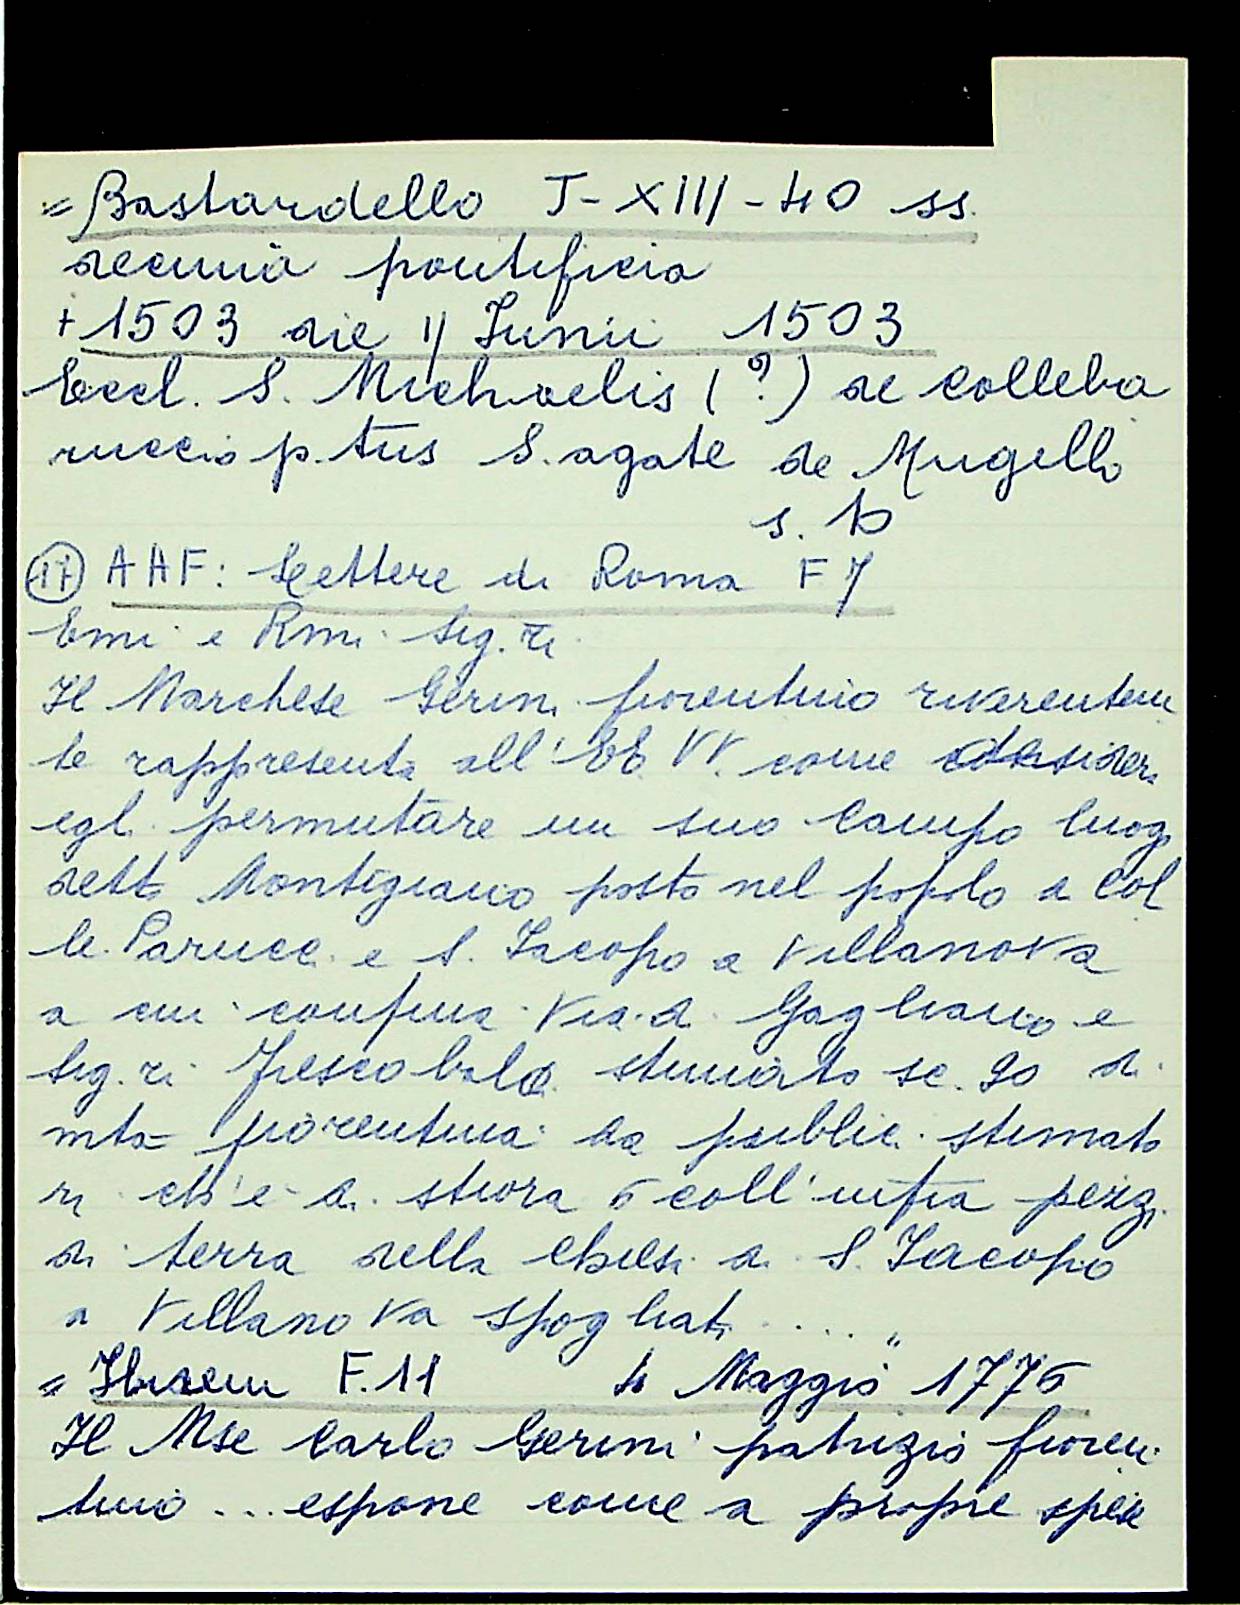 = Bastardello J-XIII-40 ss.
decima pontificia
+ 1503 die 11 Junii 1503
Eccl. S. Michaelis (?) de Colleba
ruccio p.tus S. agate de Mugello
s. 10
(17) AAF: Lettere di Roma F 7
Emi e Rmi Sig.ri
Il Marchese Gerini fiorentino riverentem
te rappresenta all'EE VV. come desidera
egli permutare un suo Campo luogo
detto Montigiano posto nel popolo a Col
le Barucci e S. Jacopo a Villanova
a cui confina Via di Gagliano e
Sig.ri Frescobaldi stimato sc. 90 di
mta= fiorentina da public. stimato
ri ch'è di stiora 6 coll'infra pezzi
di terra della Chiesa di S. Jacopo
a Villanova spogliati ..... "
= Ibidem F. 11 4 Maggio 1776
Il Mse Carlo Gerini patrizio fioren
tino ... espone come a proprie spese